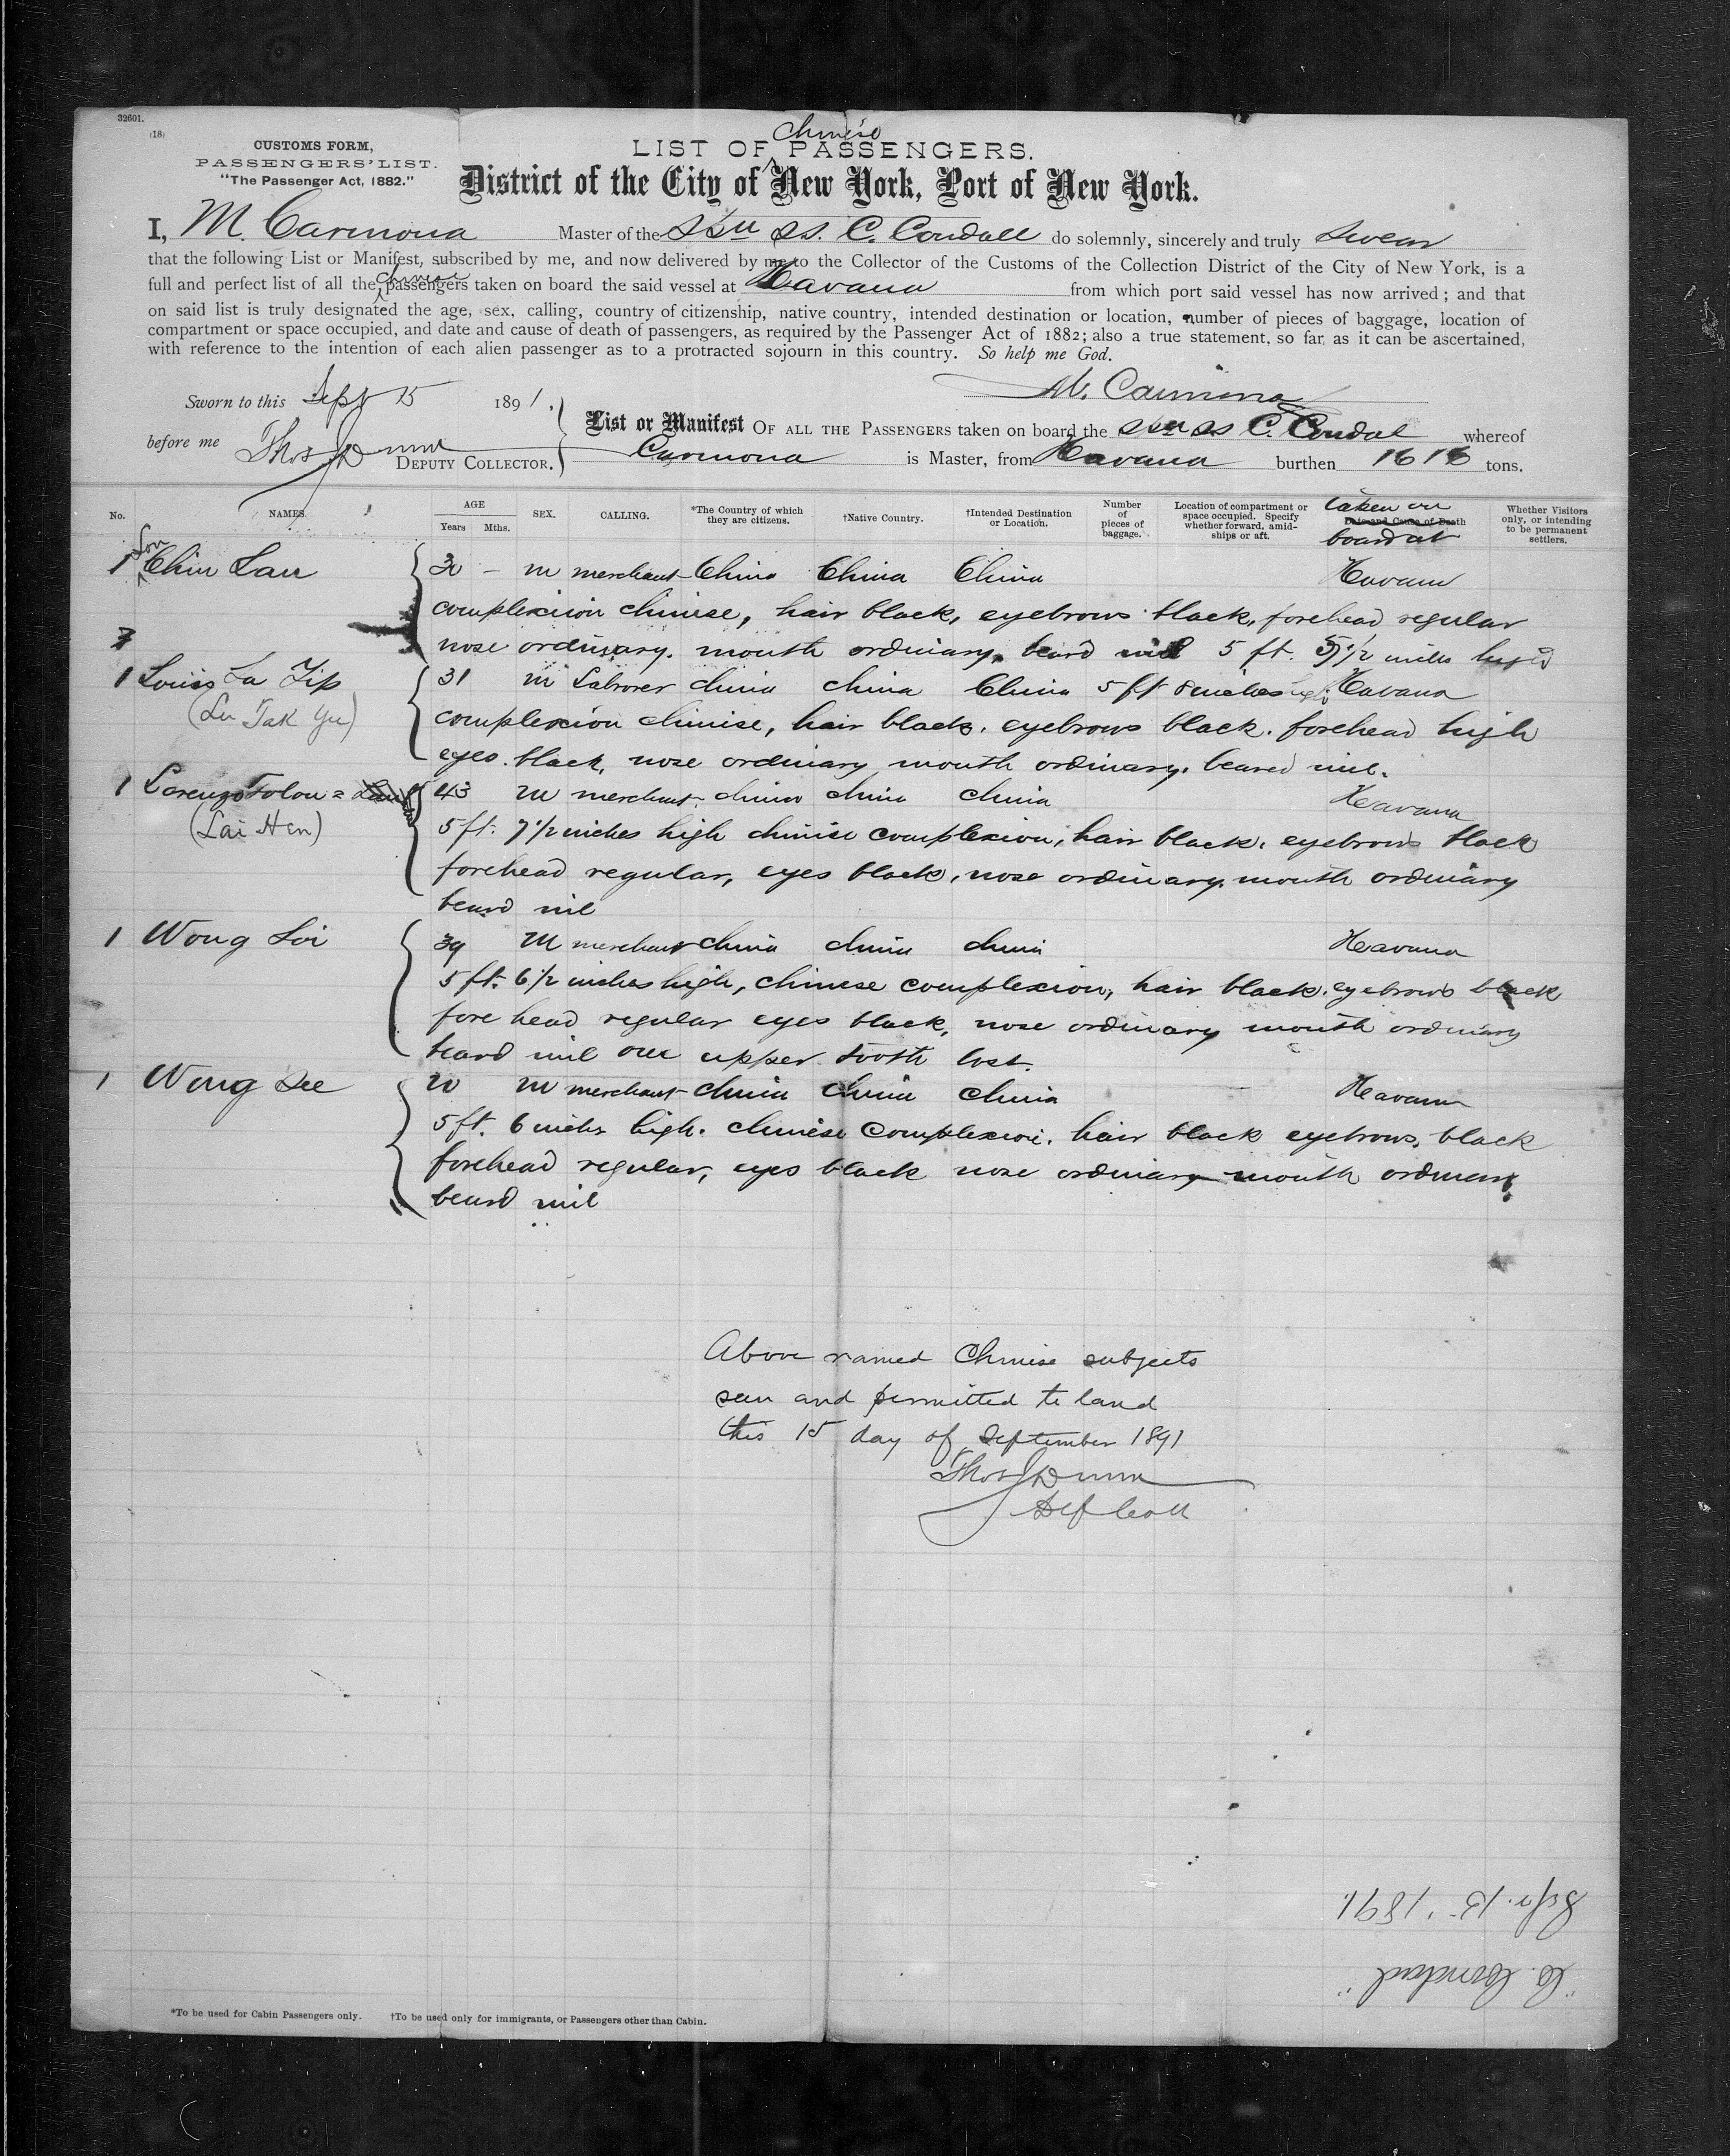 32601.
(18)
CUSTOMS FORM,
PASSENGERS' LIST.
"The Passenger Act, 1882."
Chinese
LIST OF PASSENGERS.
District of the City of New York, Port of New York.
I, M. Carmona Master of the SS. C. Condall do solemnly, sincerely and truly swear
that the following List or Manifest, subscribed by me, and now delivered by me to the Collector of the Customs of the Collection District of the City of New York, is a
full and perfect list of all the chinese passengers taken on board the said vessel at Havana from which port said vessel has now arrived; and that
on said list is truly designated the age, sex, calling, country of citizenship, native country, intended destination or location, number of pieces of baggage, location of
compartment or space occupied, and date and cause of death of passengers, as required by the Passenger Act of 1882; also a true statement, so far as it can be ascertained,
with reference to the intention of each alien passenger as to a protracted sojourn in this country. So help me God.
M. Carmona
Sworn to this Sept 15 1891.
before me Thos J Dunn DEPUTY COLLECTOR.
List or Manifest OF ALL THE PASSENGERS taken on board the SS C. Condal whereof
Carmona is Master, from Havana burthen 1616 tons.
No. NAMES. AGE Years Mths. SEX. CALLING. *The Country of which they are citizens. †Native Country. †Intended Destination or Location. Number of pieces of baggage. Location of compartment or space occupied. Specify whether forward, amidships or aft. Date and Cause of Death taken on board at Whether Visitors only, or intending to be permanent settlers.
1 Chin Lau 30 – m merchant China China China Havana
complexion chinese, hair black, eyebrows black, forehead regular
nose ordinary. mouth ordinary, beard nil 5 ft. 5 1/2 high
1 Louis La Yip 31 m Laborer china china China 5 ft 8 inches high Havana
(Lu Tak Yu)
complexion chinise, hair black. eyebrows black. forehead high
eyes black, nose ordinary mouth ordinary. beared nil.
1 Lorenzo Tolon 43 M merchant china china china Havana
(Lai Hen)
5 ft. 7 1/2 inches high chinise complexion, hair black. eyebrows black
forehead regular, eyes black, nose ordinary. mouth ordinary
beard nil
1 Wong Loi 39 M merchant china china china Havana
5 ft. 6 1/2 inches high, chinese complexion, hair black. eyebrows black
fore head regular eyes black, nose ordinary mouth ordinary
beard nil one upper tooth lost.
1 Wong See 20 m merchant china china china Havana
5 ft. 6 inches high. chinese complexion. hair black eyebrows black
forehead regular, eyes black nose ordinary mouth ordinary
beard nil
Above named Chinese subjects
seen and permitted to land
this 15 day of September 1891
Thos J Dunn
Dep Coll
"C. Condal"
Sep. 15, 1891.
*To be used for Cabin Passengers only. †To be used only for immigrants, or Passengers other than Cabin.